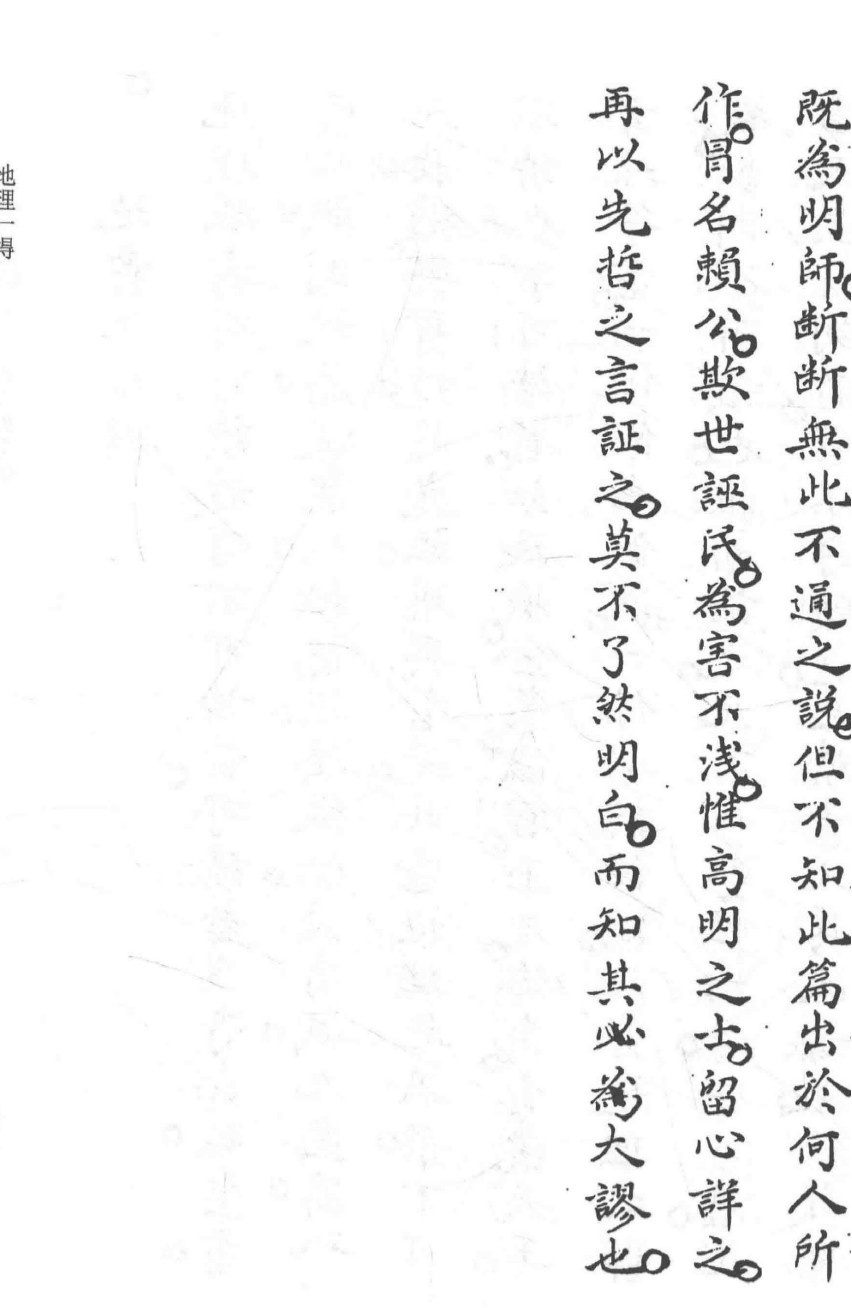 既為明師。断断無此不通之説。但不知此篇出於何人所
作。冐名頼公。欺世誣民。為害不浅。惟高明之士。留心詳之。
再以先哲之言証之。莫不了然明白。而知其必為大謬也。
地理一得